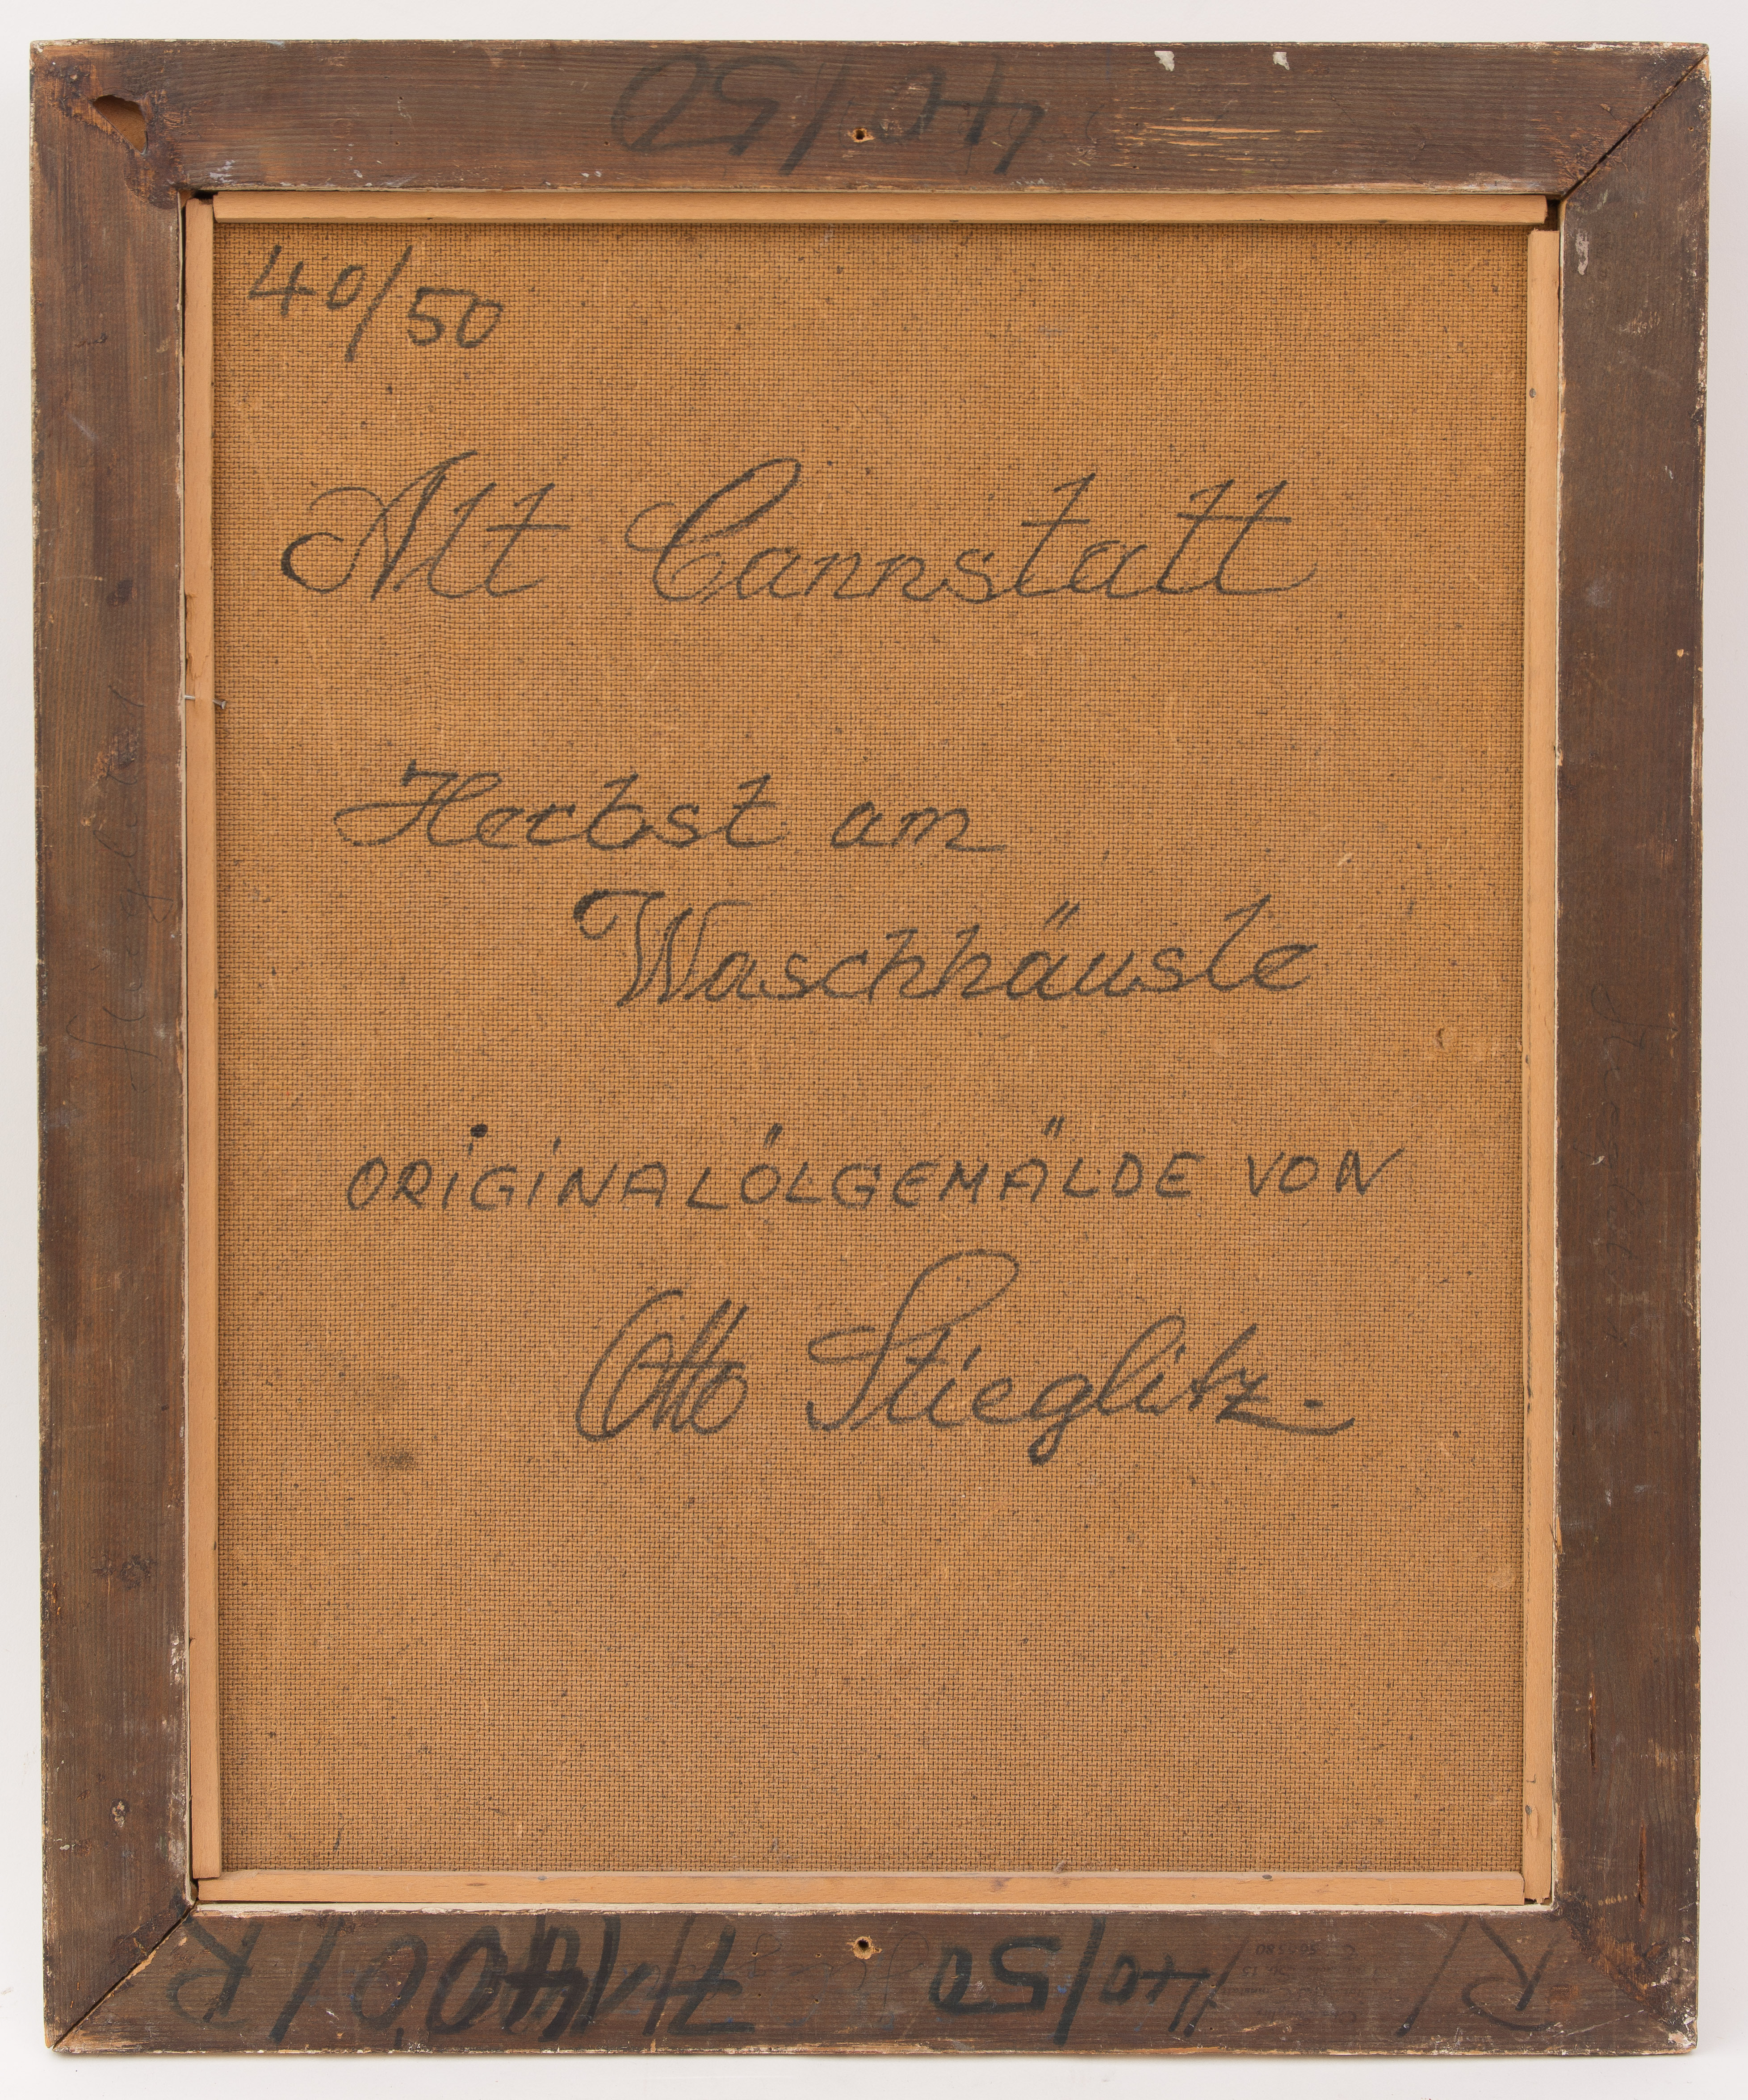 40/50
40/50
Alt Cannstatt
Herbst am
Waschhäusle
ORiGiNALÖLGEMÄLDE VON
Otto Stieglitz.
40/50